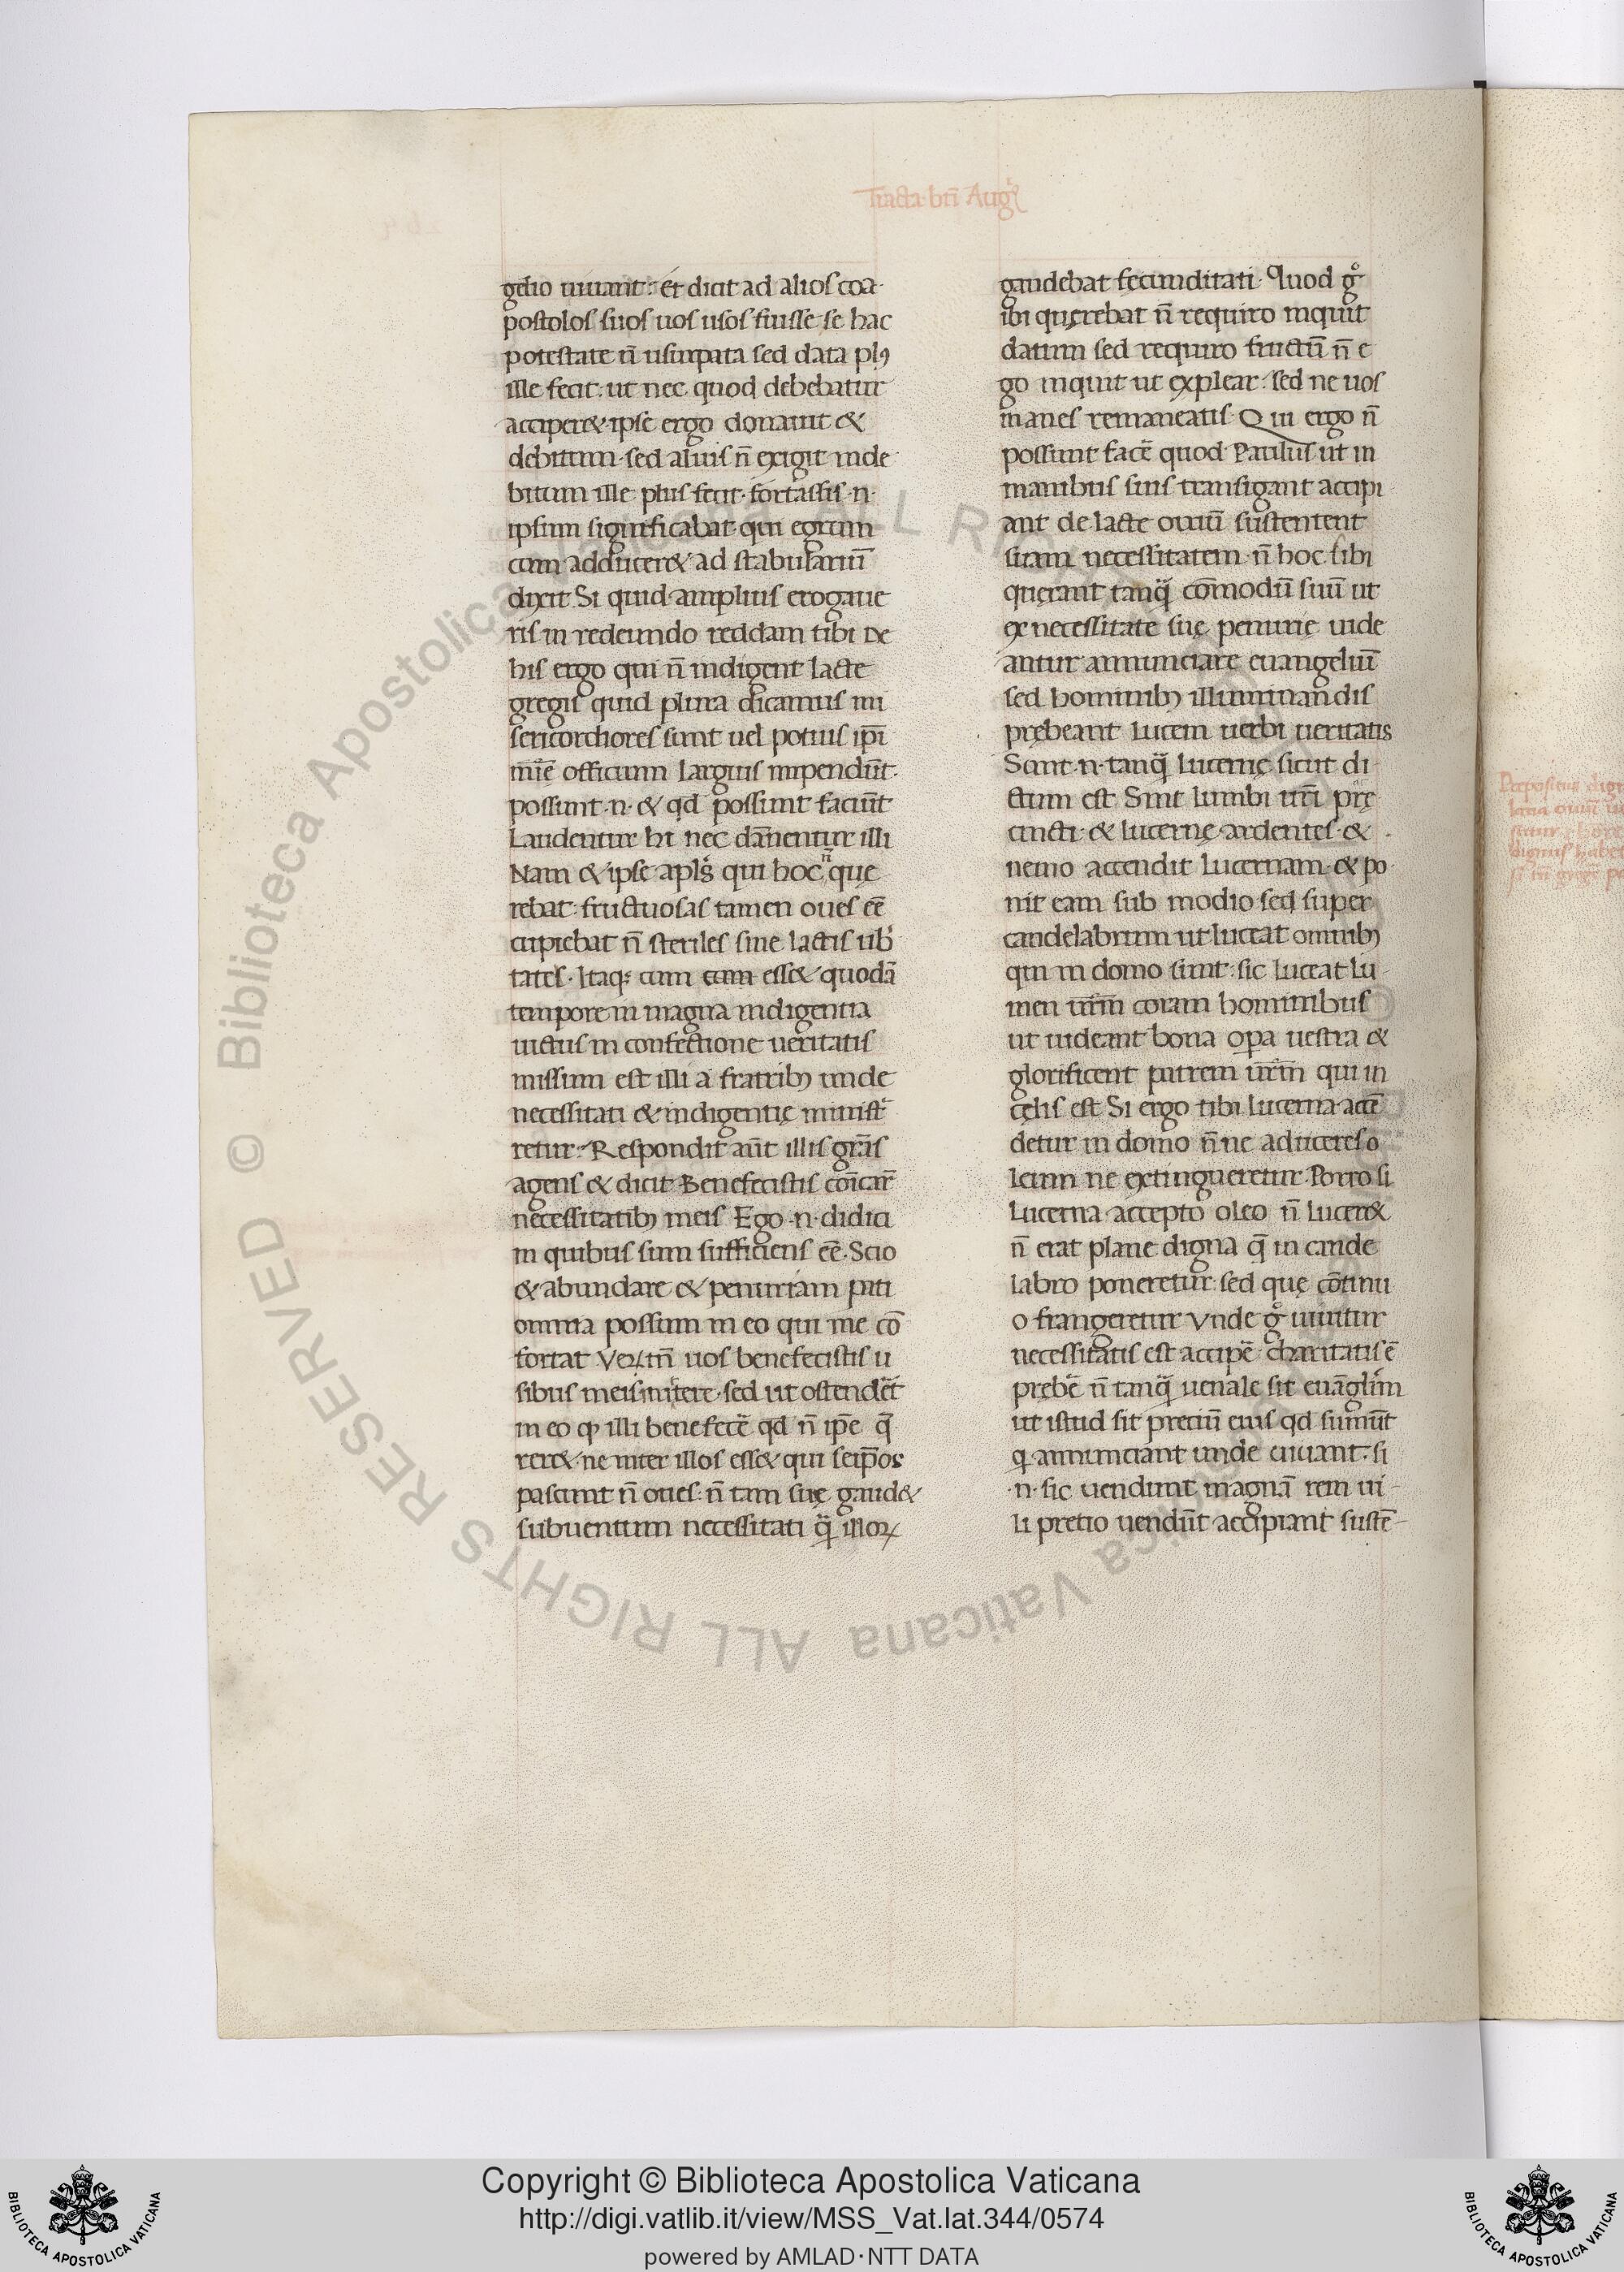 Tracta btı̄ Augꝰ
gelio uiuant: Et dicit ad alios coa
postolos suos uos usos fuisse se hac
potestate n̄ usurpata sed data plꝰ
ille fecit: ut nec quod debebatur
acciper&. ipse ergo donauit &
debitum. sed aliuis n̄ exigit inde
bitum ille plus fecit. fortassis .n.
ipsum significabat qui egrum
cum adducer& ad stabulariū
dixit. Si quid amplius erogaue
ris in redeundo reddam tibi De
his ergo qui n̄ indigent lacte
gregis quid plura dicamus mi
sericordiores sunt uel potius ip̄i
mīe officium largius inpendūt.
possunt .n. & qd possunt faciūt
Laudentur hi nec dānentur illi
Nam & ipse apls̄ qui hoc n̄ quę
rebat: fructuosas tamen oues eē
cupiebat n̄ steriles sine lactis ub
tates. Itaq; cum eam ess& quodā
tempore in magna indigentia
uictus in confectione ueritatis
missum est illi a fratribꝰ unde
necessitati & indigentię minist̄
retur. Respondit aūt illis grās
agens & dicit Benefecistis cōicar̄
necessitatibꝰ meis Ego .n. didici
in quibus sum sufficiens eē. Scio
& abundare & penuriam pati
omnia possum in eo qui me cō
fortat Veꝝ tn̄ uos benefecistis u
sibus meis mittere. sed ut ostendēt
in eo qꝫ illi benefecē qd n̄ ip̄e q̄
rer& ne inter illos ess& qui seip̄os
pascunt n̄ oues: n̄ tam suę gaud&
subuentum necessitati q̄ illoꝝ
gaudebat fecunditati. Quod gͦ
ibi quęrebat n̄ requiro inquit
datum sed requiro fructū n̄ e
go inquit ut explear: sed ne uos
inanes remaneatis. Qui ergo n̄
possunt facē quod Paulus ut in
manibus suis transigant accipi
ant de lacte ouiū sustentent
suam necessitatem. n̄ hoc sibi
quęrant tanq̄ cōmodū suū ut
ex necessitate suę penurię uide
antur annunciare euangeliū
sed hominibꝰ illuminandis
prębeant lucem uerbi ueritatis
Sunt .n. tanq̄ lucernę sicut di
ctum est Sint lumbi ur̄i prę
cincti. & lucernę ardentes. &
nemo accendit lucernam. & po
nit eam sub modio sed super
candelabrum ut luceat omnibꝰ
qui in domo sunt: sic luceat lu
men ur̄m coram hominibus
ut uideant bona op̄a uestra &
glorificent patrem ur̄m qui in
cęlis est Si ergo tibi lucerna accē
detur in domo n̄ne aduceres o
leum ne extingueretur. Porro si
Lucerna accepto oleo n̄ lucer&
n̄ erat plane digna q̄ in cande
labro poneretur: sed quę cōtinu
o frangeretur Vnde gͦ uiuitur
necessitatis est accipē charitatis ē
prębē n̄ tanq̄ uenale sit euāglīm
ut istud sit preciū eius qd sumūt
q̄ annunciant unde uiuant: si
.n. sic uendunt magnā rem ui
li pretio uendūt accipiant sustē
© Biblioteca Apostolica Vaticana ALL RIGHTS RESERVED
Copyright © Biblioteca Apostolica Vaticana
http://digi.vatlib.it/view/MSS_Vat.lat.344/0574
powered by AMLAD·NTT DATA
BIBLIOTECA APOSTOLICA VATICANA
BIBLIOTECA APOSTOLICA VATICANA